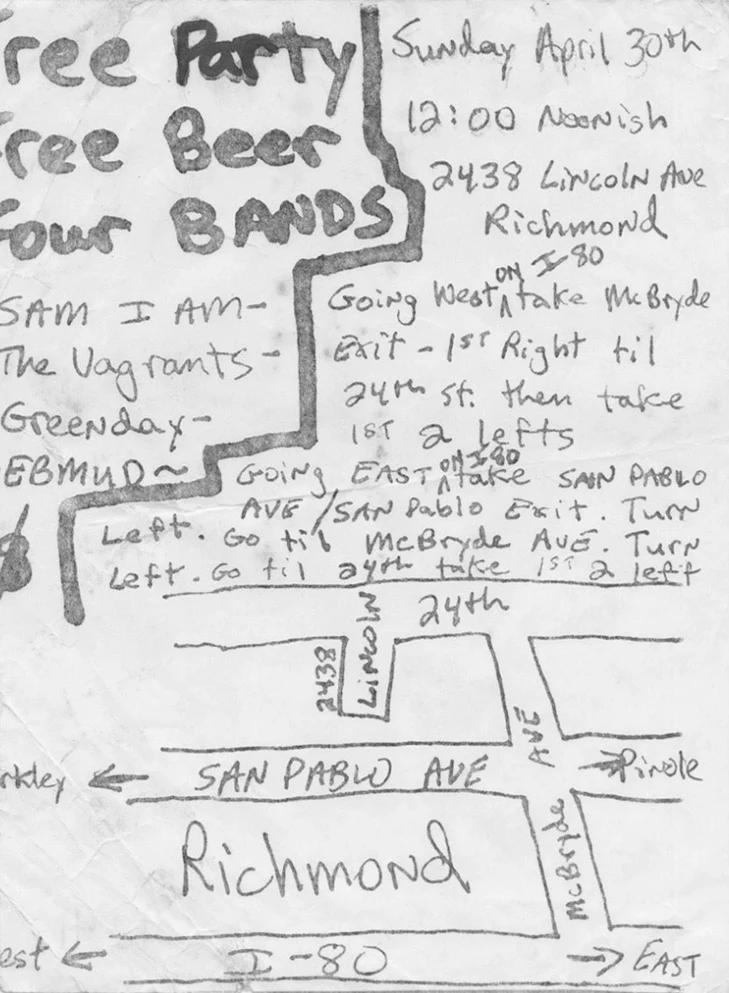 ree Party
ree Beer
our BANDS
SAM I AM-
The Vagrants-
Greenday-
EBMUD~
Sunday April 30th
12:00 Noonish
2438 Lincoln Ave
Richmond
Going West ON I-80 take McBryde
Exit - 1ST Right til
24th St. then take
1ST 2 lefts
Going EAST ON I-80 take SAN PABLO
AVE/SAN Pablo Exit. Turn
Left. Go til McBryde AVE. Turn
Left. Go til 24th take 1ST 2 left
24th
2438
LINCOLN
AVE
rkley ← SAN PABLO AVE → Pinole
McBryde
Richmond
est ← I-80 → EAST